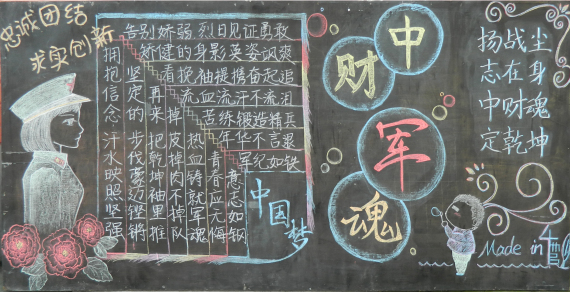 忠诚团结
求实创新
告别娇弱 烈日见证勇敢
矫健的身影英姿飒爽
看挽袖提携奋起追
流血流汗不流泪
苦练锻造精兵
年华不言累
军纪如铁
拥抱信念 汗水映照坚强
坚定的步伐豪迈铿锵
再来 把乾坤袖里推
掉皮掉肉不掉队
热血铸就军魂
青春应无悔
意志如钢
中国梦
中财军魂
扬战尘
志在身
中财魂
定乾坤
Made in